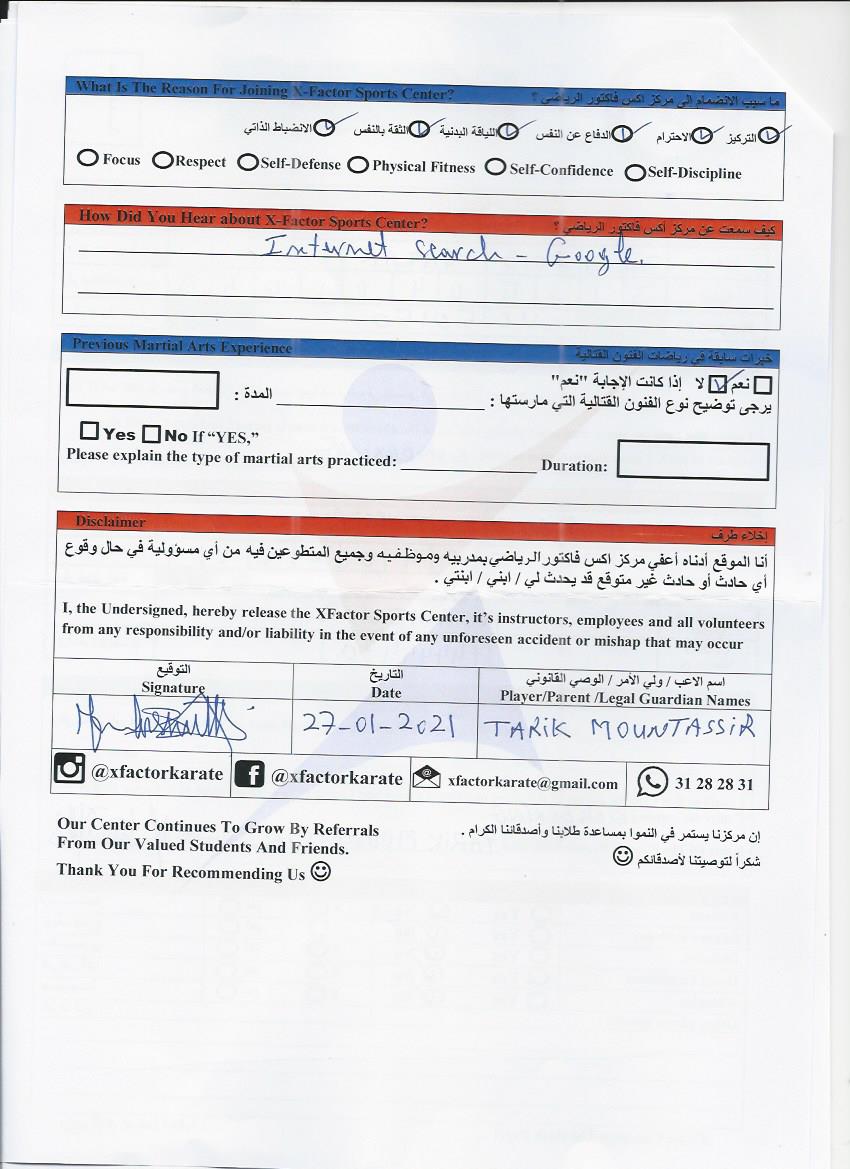 What Is The Reason For Joining X-Factor Sports Center? ما سبب الانضمام الى مركز اكس فاكتور الرياضي ؟
التركيز الاحترام الدفاع عن النفس اللياقة البدنية الثقة بالنفس الانضباط الذاتي
Focus Respect Self-Defense Physical Fitness Self-Confidence Self-Discipline
How Did You Hear about X-Factor Sports Center? كيف سمعت عن مركز أكس فاكتور الرياضي ؟
Internet search - Google.
Previous Martial Arts Experience خبرات سابقة في رياضات الفنون القتالية
نعم لا إذا كانت الإجابة "نعم"
يرجى توضيح نوع الفنون القتالية التي مارستها : المدة :
Yes No If “YES,”
Please explain the type of martial arts practiced: Duration:
Disclaimer إخلاء طرف
أنا الموقع أدناه أعفي مركز اكس فاكتور الرياضي بمدربيه وموظفيه وجميع المتطوعين فيه من أي مسؤولية في حال وقوع
أي حادث أو حادث غير متوقع قد يحدث لي / ابني / ابنتي .
I, the Undersigned, hereby release the XFactor Sports Center, it’s instructors, employees and all volunteers
from any responsibility and/or liability in the event of any unforeseen accident or mishap that may occur
التوقيع التاريخ اسم الاعب / ولي الأمر / الوصي القانوني
Signature Date Player/Parent /Legal Guardian Names
27-01-2021 TARIK MOUNTASSIR
@xfactorkarate @xfactorkarate xfactorkarate@gmail.com 31 28 28 31
Our Center Continues To Grow By Referrals إن مركزنا يستمر في النموا بمساعدة طلابنا وأصدقائنا الكرام .
From Our Valued Students And Friends. شكراً لتوصيتنا لأصدقائكم
Thank You For Recommending Us